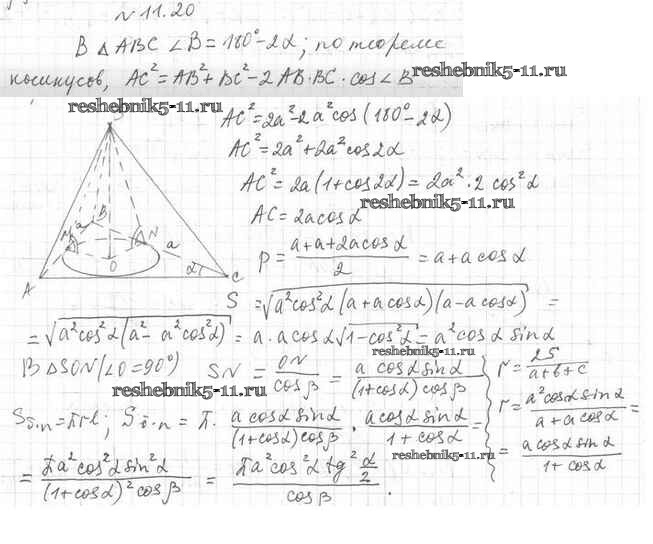 № 11.20
В △ ABC ∠B = 180° - 2α; по теореме
косинусов, AC² = AB² + BC² - 2 AB·BC · cos∠B
reshebnik5-11.ru
reshebnik5-11.ru
AC² = 2a² - 2a² cos(180° - 2α)
AC² = 2a² + 2a² cos2α
AC² = 2a(1 + cos2α) = 2a² · 2 cos²α
reshebnik5-11.ru
AC = 2a cosα
p = (a + a + 2a cosα)/2 = a + a cosα
S
M a B N a
A O α C
S = √(a² cos²α (a + a cosα)(a - a cosα)) =
= √(a² cos²α (a² - a² cos²α)) = a · a cosα √(1 - cos²α) = a² cosα sinα
reshebnik5-11.ru
В △SON (∠O = 90°) SN = ON/cosβ = a cosα sinα/((1 + cosα) cosβ)
reshebnik5-11.ru
r = 2S/(a + b + c)
r = a² cosα sinα/(a + a cosα) =
= a cosα sinα/(1 + cosα)
Sб.п = πrl; Sб.п = π · a cosα sinα/((1 + cosα) cosβ) · a cosα sinα/(1 + cosα) =
reshebnik5-11.ru
= πa² cos²α sin²α/((1 + cosα)² cosβ) = πa² cos²α tg² α/2 / cosβ.